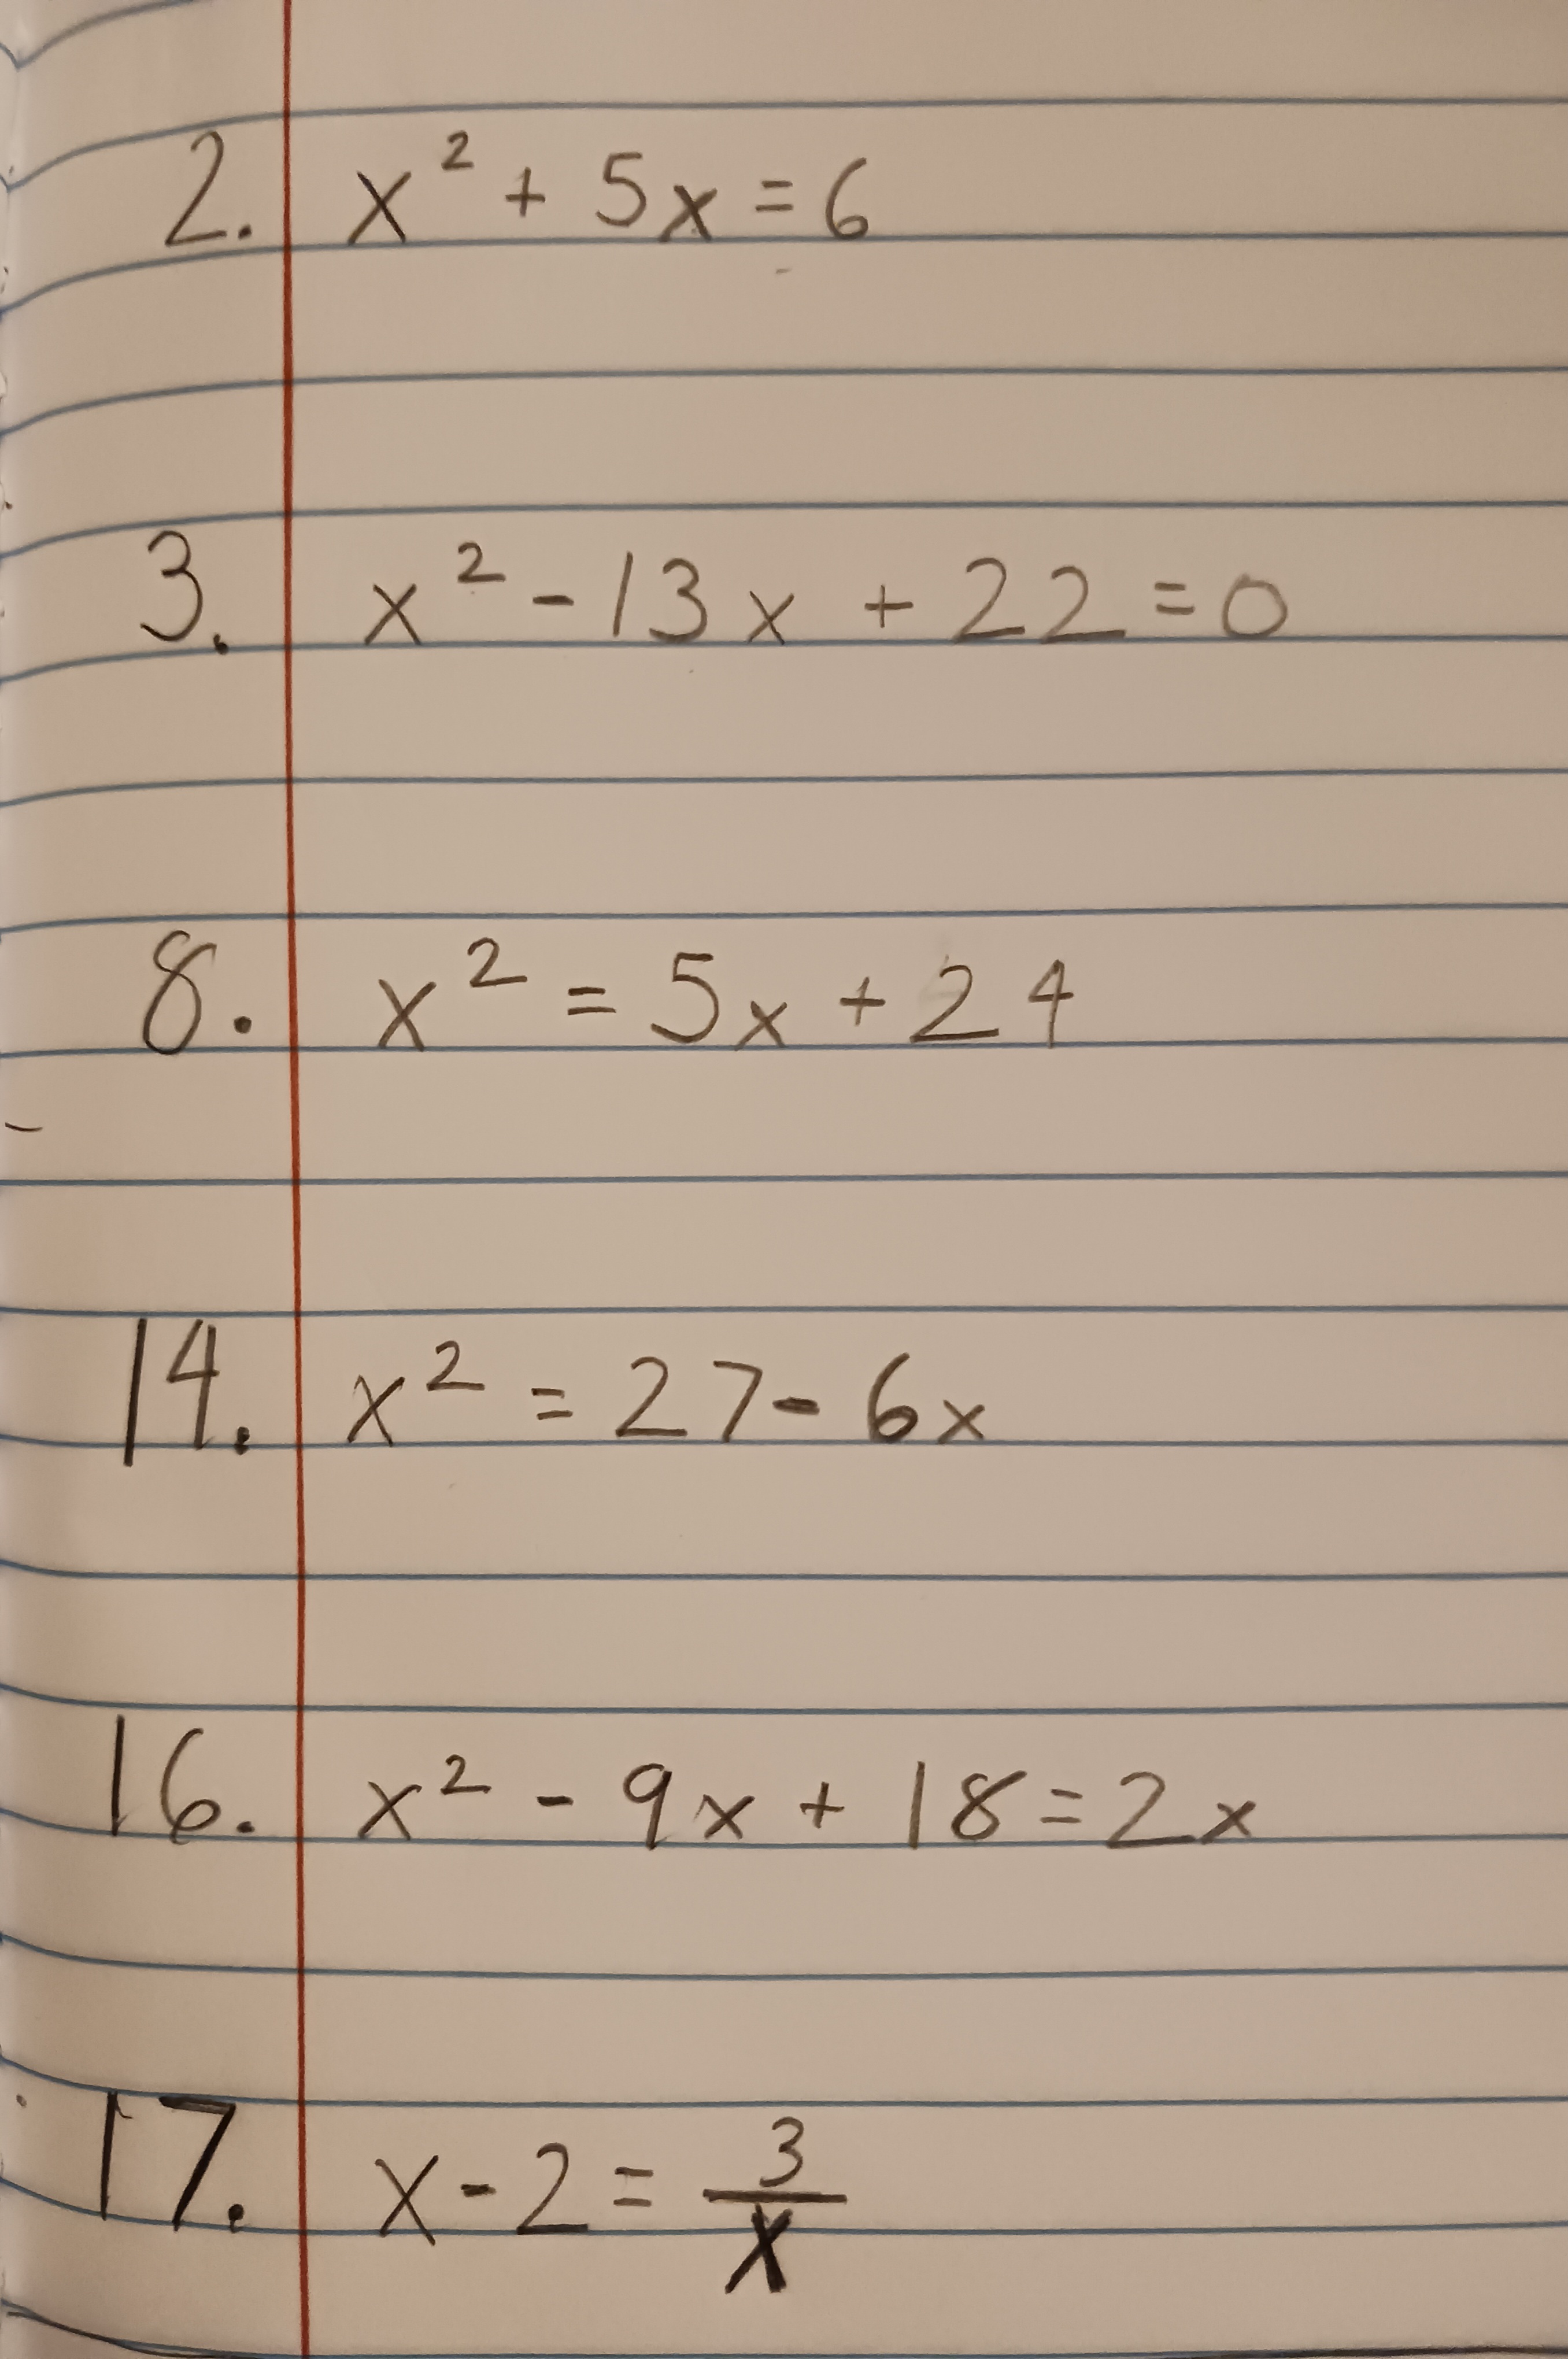 2. x² + 5x = 6
3. x² - 13x + 22 = 0
8. x² = 5x + 24
14. x² = 27 - 6x
16. x² - 9x + 18 = 2x
17. x - 2 = 3/x